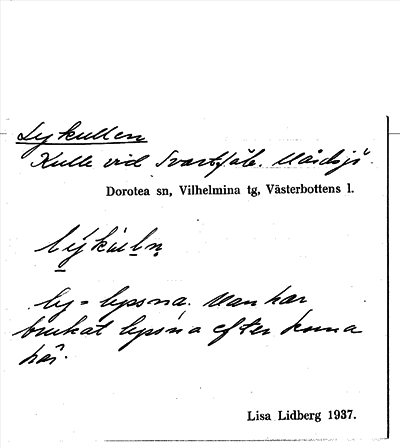 Lykullen
Kulle vid Svartsjåb. Mårdsjö.
Dorotea sn, Vilhelmina tg, Västerbottens l.
lýkúl̲n̥
ly = lyssna. Man har
brukat lyssna efter korna
här.
Lisa Lidberg 1937.